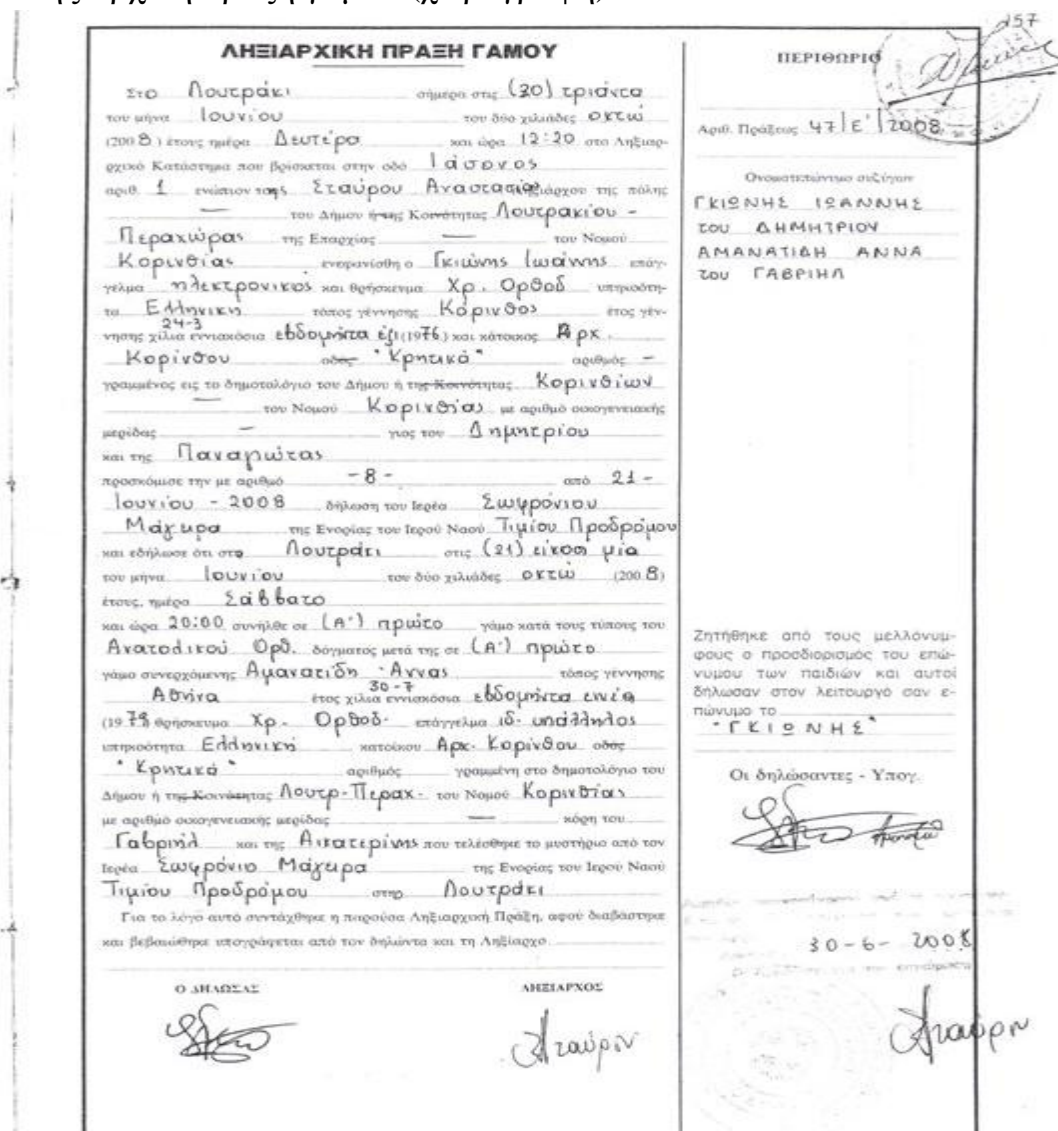 157
ΛΗΞΙΑΡΧΙΚΗ ΠΡΑΞΗ ΓΑΜΟΥ
Στο Λουτράκι σήμερα στις (30) τριάντα
του μήνα Ιουνίου του δύο χιλιάδες οκτώ
(2008) έτους ημέρα Δευτέρα και ώρα 12:20 στο Ληξιαρ-
χικό Κατάστημα που βρίσκεται στην οδό Ιάσονος
αριθ. 1 ενώπιον της Σταύρου Αναστασία Ληξιάρχου της πόλης
— του Δήμου ή της Κοινότητας Λουτρακίου -
Περαχώρας της Επαρχίας — του Νομού
Κορινθίας ενεφανίσθη ο Γκιώνης Ιωάννης επάγ-
γελμα ηλεκτρονικός και θρήσκευμα Χρ. Ορθοδ υπηκοότη-
τα Ελληνική τόπος γέννησης Κόρινθος έτος γέν-
24-3
νησης χίλια εννιακόσια εβδομήντα έξι (1976) και κάτοικος Αρχ.
Κορίνθου οδός "Κρητικά" αριθμός -
γραμμένος εις το δημοτολόγιο του Δήμου ή της Κοινότητας Κορινθίων
— του Νομού Κορινθίας με αριθμό οικογενειακής
μερίδας — γιος του Δημητρίου
και της Παναγιώτας
προσκόμισε την με αριθμό -8- από 21-
Ιουνίου - 2008 δήλωση του Ιερέα Σωφρόνιου
Μάγειρα της Ενορίας του Ιερού Ναού Τιμίου Προδρόμου
και εδήλωσε ότι στο Λουτράκι στις (21) είκοσι μία
του μήνα Ιουνίου του δύο χιλιάδες οκτώ (2008)
έτους, ημέρα Σάββατο
και ώρα 20:00 συνήλθε σε (Α') πρώτο γάμο κατά τους τύπους του
Ανατολικού Ορθ. δόγματος μετά της σε (Α') πρώτο
γάμο συνερχόμενης Αμανατίδη Άννας τόπος γέννησης
30-7
Αθήνα έτος χίλια εννιακόσια εβδομήντα εννέα
(1979 θρήσκευμα Χρ. Ορθοδ. επάγγελμα ιδ. υπάλληλος
υπηκοότητα Ελληνική κατοίκου Αρχ. Κορίνθου οδός
"Κρητικά" αριθμός γραμμένη στο δημοτολόγιο του
Δήμου ή της Κοινότητας Λουτρ-Περαχ- του Νομού Κορινθίας
με αριθμό οικογενειακής μερίδας — κόρη του
Γαβριήλ και της Αικατερίνης που τελέσθηκε το μυστήριο από τον
Ιερέα Σωφρόνιο Μάγειρα της Ενορίας του Ιερού Ναού
Τιμίου Προδρόμου στο Λουτράκι
Για το λόγο αυτό συντάχθηκε η παρούσα Ληξιαρχική Πράξη, αφού διαβάστηκε
και βεβαιώθηκε υπογράφεται από τον δηλώντα και τη Ληξίαρχο
Ο ΔΗΛΩΣΑΣ ΛΗΞΙΑΡΧΟΣ
Σταύρου
ΠΕΡΙΘΩΡΙΟ
Αριθ. Πράξεως 47/Ε'/2008
Ονοματεπώνυμο συζύγων
ΓΚΙΩΝΗΣ ΙΩΑΝΝΗΣ
του ΔΗΜΗΤΡΙΟΥ
ΑΜΑΝΑΤΙΔΗ ΑΝΝΑ
του ΓΑΒΡΙΗΛ
Ζητήθηκε από τους μελλόνυμ-
φους ο προσδιορισμός του επώ-
νυμου των παιδιών και αυτοί
δήλωσαν στον λειτουργό σαν ε-
πώνυμο το
"ΓΚΙΩΝΗΣ"
Οι δηλώσαντες - Υπογ.
30-6-2008
Σταύρου